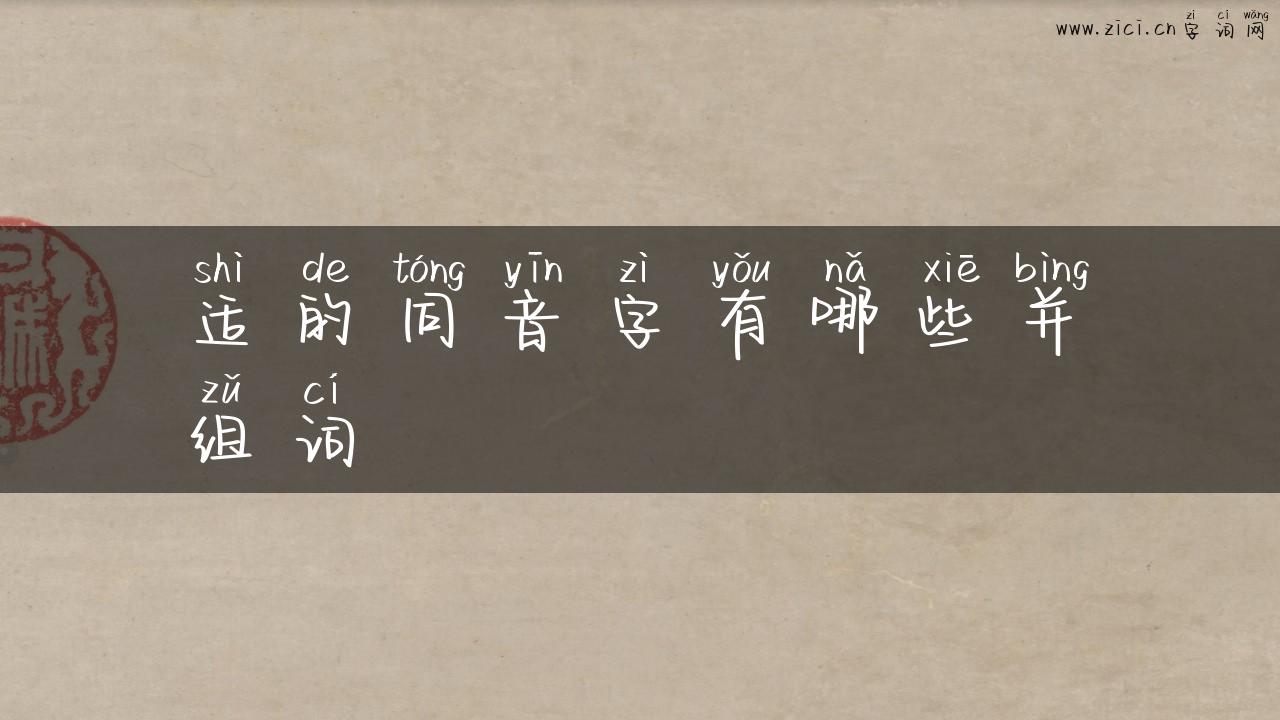 zì cí wǎng
www.zici.cn 字词网
shì de tóng yīn zì yǒu nǎ xiē bìng
适的同音字有哪些并
zǔ cí
组词